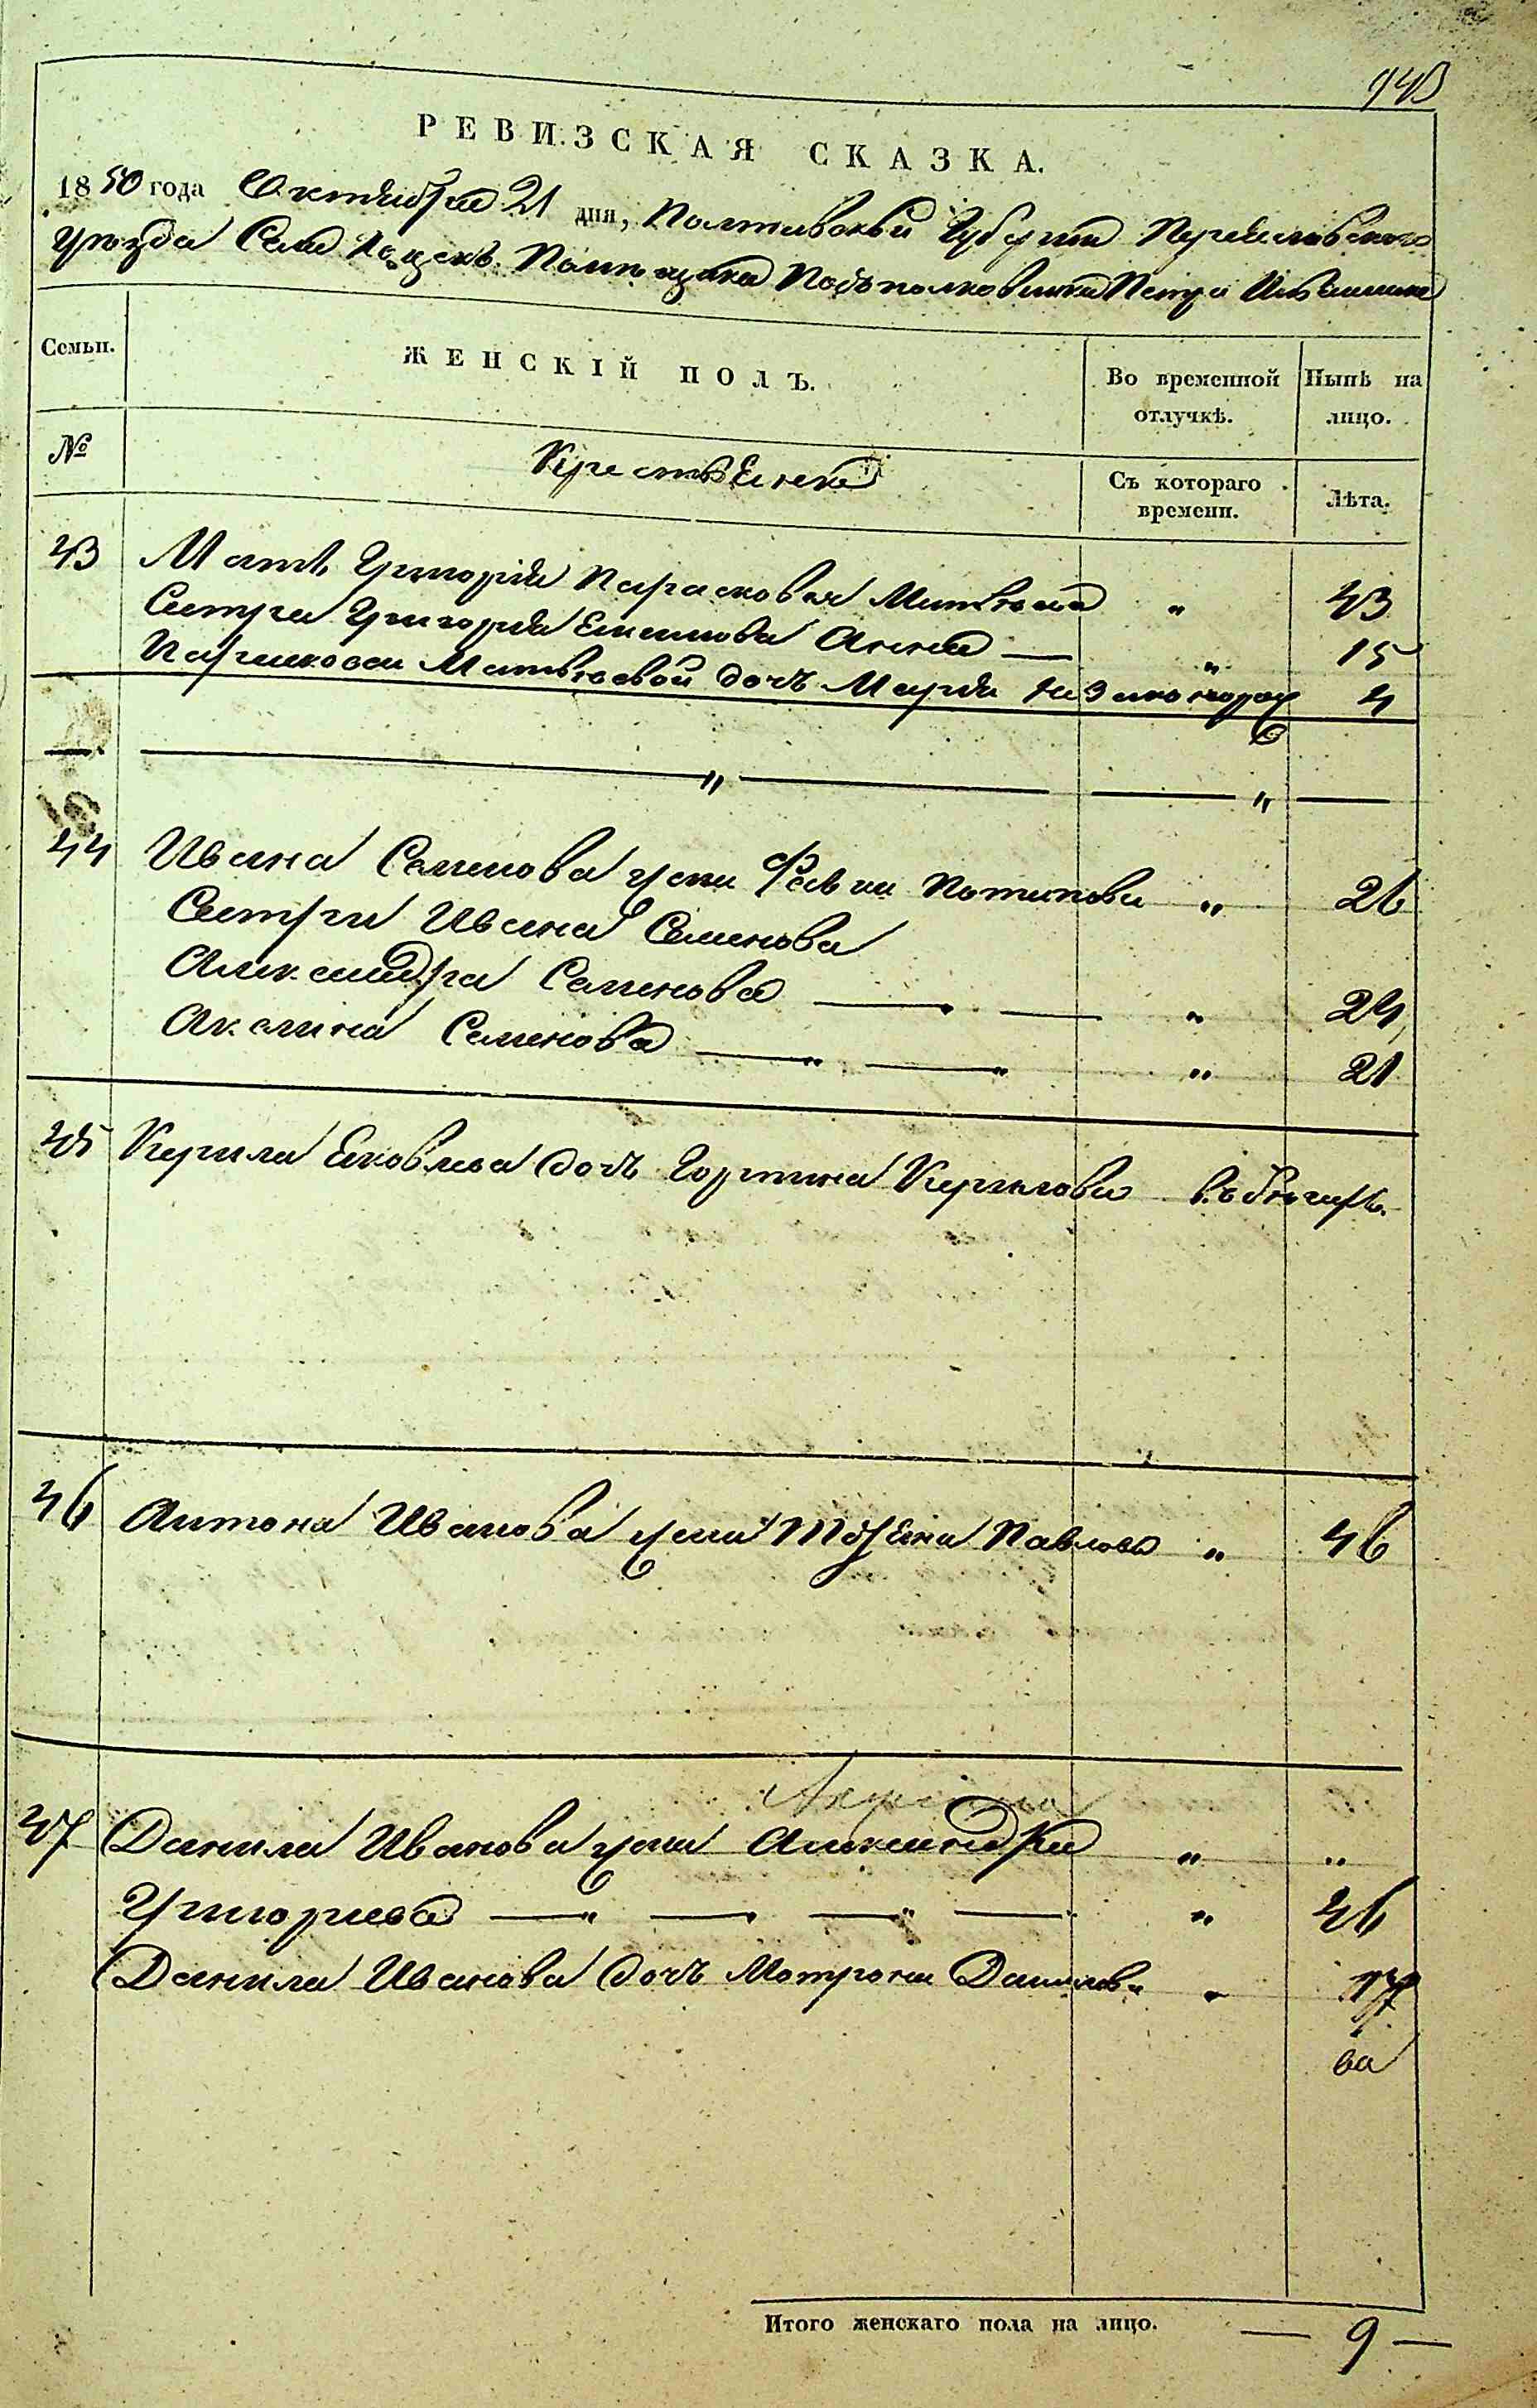 943
РЕВИЗСКАЯ СКАЗКА.
1850 года Октября 21 дня, Полтавской Губернии Переяславского
уезда Села Помещика Подполковника Петра
Семьи. ЖЕНСКІЙ ПОЛЪ. Во временной отлучкѣ. Нынѣ на лицо.
№ Крестьяне Съ котораго времени. Лѣта.
43 Мать Григорія Парасковья Матвеева " 43
Сестра Григорія Екимова Анна — " 15
Парасковьи Матвеевой дочь Марія незаконнорож 4
— — " — — " —
44 Ивана Семенова жена Потапова " 26
Сестры Ивана Семенова
Александра Семенова — — " 24
Акелина Семенова — " — " " 21
45 Кирила Яковлева дочь Горпина Кирилова въ
46 Антона Иванова жена Татьяна Павлова " 46
Аксинья
47 Данила Иванова жена Александра " "
Григорьева — " — — " — " 46
Данила Иванова дочь Мотрона Данилова " 17
ва
Итого женскаго пола на лицо. — 9 —